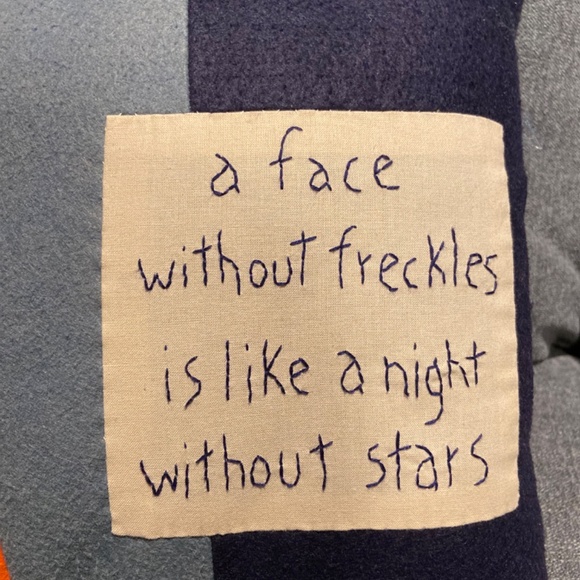 a face
without freckles
is like a night
without stars